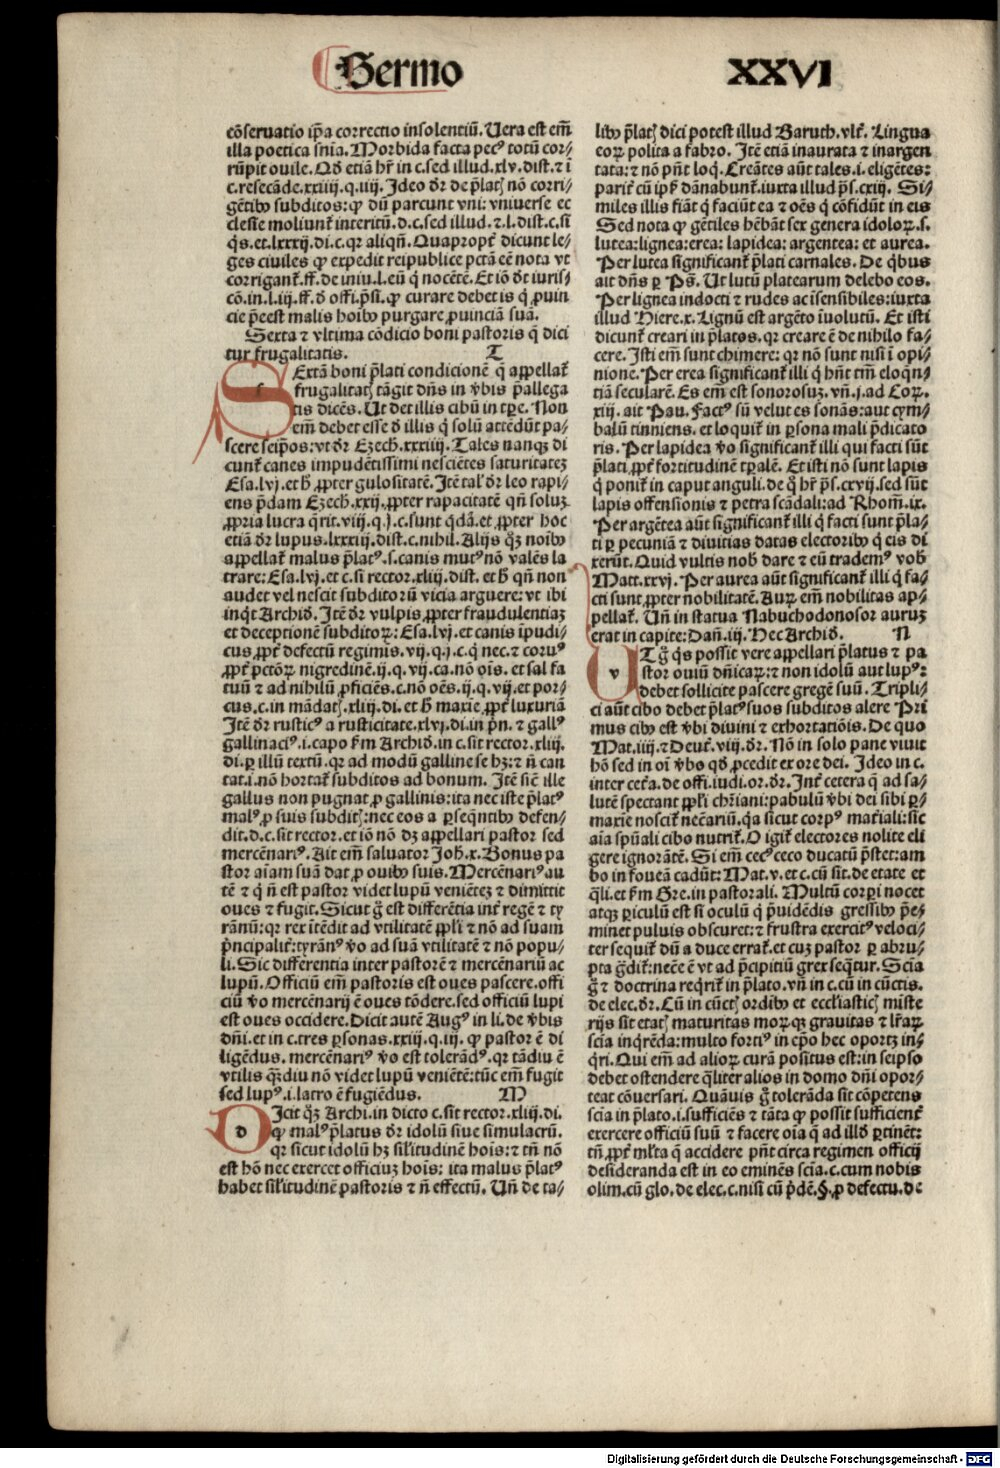 Sermo
XXVI
cōseruatio ip̄a correctio insolentiū. Uera est em̄
illa poetica snīa. Morbida facta pecꝰ totū cor⸗
rūpit ouile. Qd̄ etiā hr̄ in c. sed illud. xlv. dist. ⁊ ī
c. resecāde. xxiiij. q. iiij. Ideo dr̄ de p̄latꝭ nō corri⸗
gētibꝰ subditos: ꝙ dū parcunt vni: vniuerse ec
clesie moliunt᷑ interitū. d. c. sed illud. ⁊. l. dist. c. si
q̄s. et. lxxxij. di. c. qꝛ aliqn̄. Quapropt᷑ dicunt le⸗
ges ciuiles ꝙ expedit reipublice pctā eē nota vt
corrigant᷑. ff. de iniu. l. eū q̄ nocētē. Et iō dt̄ iuris⸗
cō. in. l. iij. ff. d̄ offi. p̄si. ꝙ curare debet is q̄ ꝓuin
cie p̄eest malis hoībꝰ purgare ꝓuinciā suā.
Sexta ⁊ vltima cōdicio boni pastoris q̄ dici
tur frugalitatis. T
s Extā boni p̄lati condicionē q̄ appellat᷑
frugalitatꝭ tāgit dn̄s in v̄bis p̄allega
tis dicēs. Ut det illis cibū in tp̄e. Non
em̄ debet esse d̄ illis q̄ solū attēdūt pa⸗
scere seip̄os: vt dr̄ Ezech. xxxiiij. Tales nanqꝫ di
cunt᷑ canes impudētissimi nesciētes saturitatez
Esa. lvj. et h̄ ꝓpter gulositatē. Itē tal᷑ dr̄ leo rapi⸗
ens p̄dam Ezech. xxij. ꝓpter rapacitatē qn̄ soluꝫ
ꝓpria lucra q̄rit. viij. q. j. c. sunt q̄dā. et ꝓpter hoc
etiā dr̄ lupus. lxxxiij. dist. c. nihil. Alijs qꝫ noībꝰ
appellat᷑ malus p̄latꝰ. s. canis mutꝰ nō valēs la
trare: Esa. lvj. et c. si rector. xliij. dist. et h̄ qn̄ non
audet vel nescit subditorū vicia arguere: vt ibi
inq̄t Archid̄. Itē dr̄ vulpis ꝓpter fraudulentiaꝫ
et deceptionē subditoꝝ: Esa. lvj. et canis īpudi⸗
cus ꝓpt᷑ defectū regimis. vij. q. j. c. q̄ nec. ⁊ coruꝰ
ꝓpt᷑ pctōꝝ nigredinē. ij. q. vij. ca. nō oīs. et sal fa
tuū ⁊ ad nihilū ꝓficiēs. c. nō oēs. ij. q. vij. et por⸗
cus. c. in mādatꝭ. xliij. di. et h̄ maxie ꝓpt᷑ luxuriā
Itē dr̄ rusticꝰ a rusticitate. xlvj. di. in p̄n. ⁊ gallꝰ
gallinaciꝰ. i. capo ẜm Archid̄. in c. sit rector. xliij.
di. ꝑ illū textū. qꝛ ad modū galline se hꝫ: ⁊ n̄ can
tat. i. nō hortat᷑ subditos ad bonum. Itē sic̄ ille
gallus non pugnat ꝓ gallinis: ita nec iste p̄latꝰ
malꝰ ꝓ suis subditꝭ: nec eos a ꝑseqn̄tibꝰ defen⸗
dit. d. c. sit rector. et iō nō dꝫ appellari pastor sed
mercēnariꝰ. Ait em̄ saluator Joh̄. x. Bonus pa
stor aīam suā dat ꝓ ouibꝰ suis. Mercēnariꝰ au
tē ⁊ q̄ n̄ est pastor videt lupū veniētez ⁊ dimittit
oues ⁊ fugit. Sicut g̊ est differētia int᷑ regē ⁊ ty
rānū: qꝛ rex itēdit ad vtilitatē ppl᷑i ⁊ nō ad suam
p̄ncipalit᷑: tyrānꝰ v̊o ad suā vtilitatē ⁊ nō popu⸗
li. Sic differētia inter pastorē ⁊ mercēnariū ac
lupū. Officiū em̄ pastoris est oues pascere. offi
ciū v̊o mercēnarij ē oues tōdere. sed officiū lupi
est oues occidere. Dicit autē Augꝰ in li. de v̄bis
dn̄i. et in c. tres ꝑsonas. xxiij. q. iij. ꝙ pastor ē di
ligēdus. mercēnariꝰ v̊o est tolerādꝰ. qꝛ tādiu ē
vtilis qꝫdiu nō videt lupū veniētē: tūc em̄ fugit
sed lupꝰ. i. latro ē fugiēdus. M
d Icit qꝫ Archi. in dicto c. sit rector. xliij. di.
ꝙ malꝰ p̄latus dr̄ idolū siue simulacrū.
qꝛ sicut idolū hꝫ sil᷑itudinē hoīs: ⁊ tn̄ nō
est hō nec exercet officiuꝫ hoīs: ita malus p̄latꝰ
habet sil᷑itudinē pastoris ⁊ n̄ effectū. Un̄ de ta⸗
libꝰ p̄latꝭ dici potest illud Baruch. vlt᷑. Lingua
eoꝝ polita a fabro. Itē etiā inaurata ⁊ inargen
tata: ⁊ nō pn̄t loq̄. Creātes aūt tales. i. eligētes:
parit᷑ cū ip̄is dānabunt᷑. iuxta illud ps̄. cxiij. Si⸗
miles illis fiāt q̄ faciūt ea ⁊ oēs q̄ cōfidūt in eis
Sed nota ꝙ gētiles hēbāt sex genera idoloꝝ. s.
lutea: lignea: erea: lapidea: argentea: et aurea.
Per lutea significant᷑ p̄lati carnales. De qbus
ait dn̄s ꝑ Ps̄. Ut lutū platearum delebo eos.
Per lignea indocti ⁊ rudes ac īsensibiles: iuxta
illud Hiere. x. Lignū est argēto īuolutū. Et isti
dicunt᷑ creari in p̄latos. qꝛ creare ē de nihilo fa⸗
cere. Isti em̄ sunt chimere: qꝛ nō sunt nisi ī opi⸗
nione. Per erea significant᷑ illi q̄ hn̄t tm̄ eloqn̄⸗
tiā secularē. Es em̄ est sonorosuꝫ. vn̄. j. ad Coꝝ.
xiij. ait Pau. Factꝰ sū velut es sonās: aut cym⸗
balū tinniens. et loquit᷑ in ꝑsona mali p̄dicato
ris. Per lapidea v̊o significant᷑ illi qui facti sūt
p̄lati ꝓpt᷑ fortitudinē tꝑalē. Et isti nō sunt lapis
q̄ ponit᷑ in caput anguli. de q̊ hr̄ ps̄. cxvij. sed sūt
lapis offensionis ⁊ petra scādali: ad Rhom. ix.
Per argētea aūt significant᷑ illi q̄ facti sunt p̄la⸗
ti ꝑ pecuniā ⁊ diuitias datas electoribꝰ q̄ eis di
xerūt. Quid vultis nob̄ dare ⁊ eū trademꝰ vob̄
Matt. xxvi. Per aurea aūt significant᷑ illi q̄ fa⸗
cti sunt ꝓpter nobilitatē. Auꝝ em̄ nobilitas ap⸗
pellat᷑. Un̄ in statua Nabuchodonosor auruꝫ
erat in capite: Dan̄. iij. Hec Archid̄. N
v T g̊ q̄s possit vere appellari p̄latus ⁊ pa
stor ouiū dn̄icaꝝ: ⁊ non idolū aut lupꝰ:
debet sollicite pascere gregē suū. Tripli⸗
ci aūt cibo debet p̄latꝰ suos subditos alere Pri
mus cibꝰ est v̄bi diuini ⁊ exhortatiōis. De quo
Mat. iiij. ⁊ Deut᷑. viij. dr̄. Nō in solo pane viuit
hō sed in oī v̄bo qd̄ ꝓcedit ex ore dei. Ideo in c.
inter cet᷑a. de offi. iudi. or. dr̄. Int᷑ cetera q̄ ad sa⸗
lutē spectant ppl᷑i chr̄iani: pabulū v̄bi dei sibi ꝑ⸗
maxie noscit᷑ necꝰariū. q̄a sicut corpꝰ mat᷑iali: sic
aīa spūali cibo nutrit᷑. O igit᷑ electores nolite eli
gere ignorātē. Si em̄ cecꝰ ceco ducatū p̄stet: am
bo in foueā cadūt: Mat. v. et c. cū sit. de etate et
q̄li. et ẜm Gre. in pastorali. Multū corpi nocet
atqꝫ ꝑiculū est si oculū q̄ p̄uidēdis gressibꝰ p̄e⸗
minet puluis obscuret: ⁊ frustra exercitꝰ veloci⸗
ter sequit᷑ dū a duce errat᷑. et cuꝫ pastor ꝑ abru⸗
pta g̊dit᷑: necē ē vt ad p̄cipitiū grex seq̄tur. Scīa
g̊ ⁊ doctrina reqrit᷑ in p̄lato. vn̄ in c. cū in cūctis.
de elec. dr̄. Cū in cūctꝭ ordībꝰ et eccl᷑iasticꝭ miste
rijs sit etatꝭ maturitas moꝝqꝫ grauitas ⁊ lr̄aꝝ
scīa inq̄rēda: multo fortiꝰ in ep̄o hec oportꝫ in⸗
q̄ri. Qui em̄ ad alioꝝ curā positus est: in seipso
debet ostendere q̄liter alios in domo dn̄i opor⸗
teat cōuersari. Quāuis g̊ tolerāda sit cōpetens
scīa in p̄lato. i. sufficiēs ⁊ tāta ꝙ possit sufficient᷑
exercere officiū suū ⁊ facere oīa q̄ ad illd̄ ꝑtinēt:
tn̄ ꝓpt᷑ ml᷑ta q̄ accidere pn̄t circa regimen officij
desideranda est in eo eminēs scīa. c. cum nobis
olim. cū glo. de elec. c. nisi cū p̄dē. §. ꝓ defectu. de
Digitalisierung gefördert durch die Deutsche Forschungsgemeinschaft - DFG